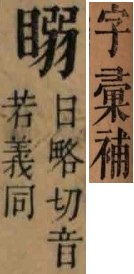 字彙補
日略切音
若義同